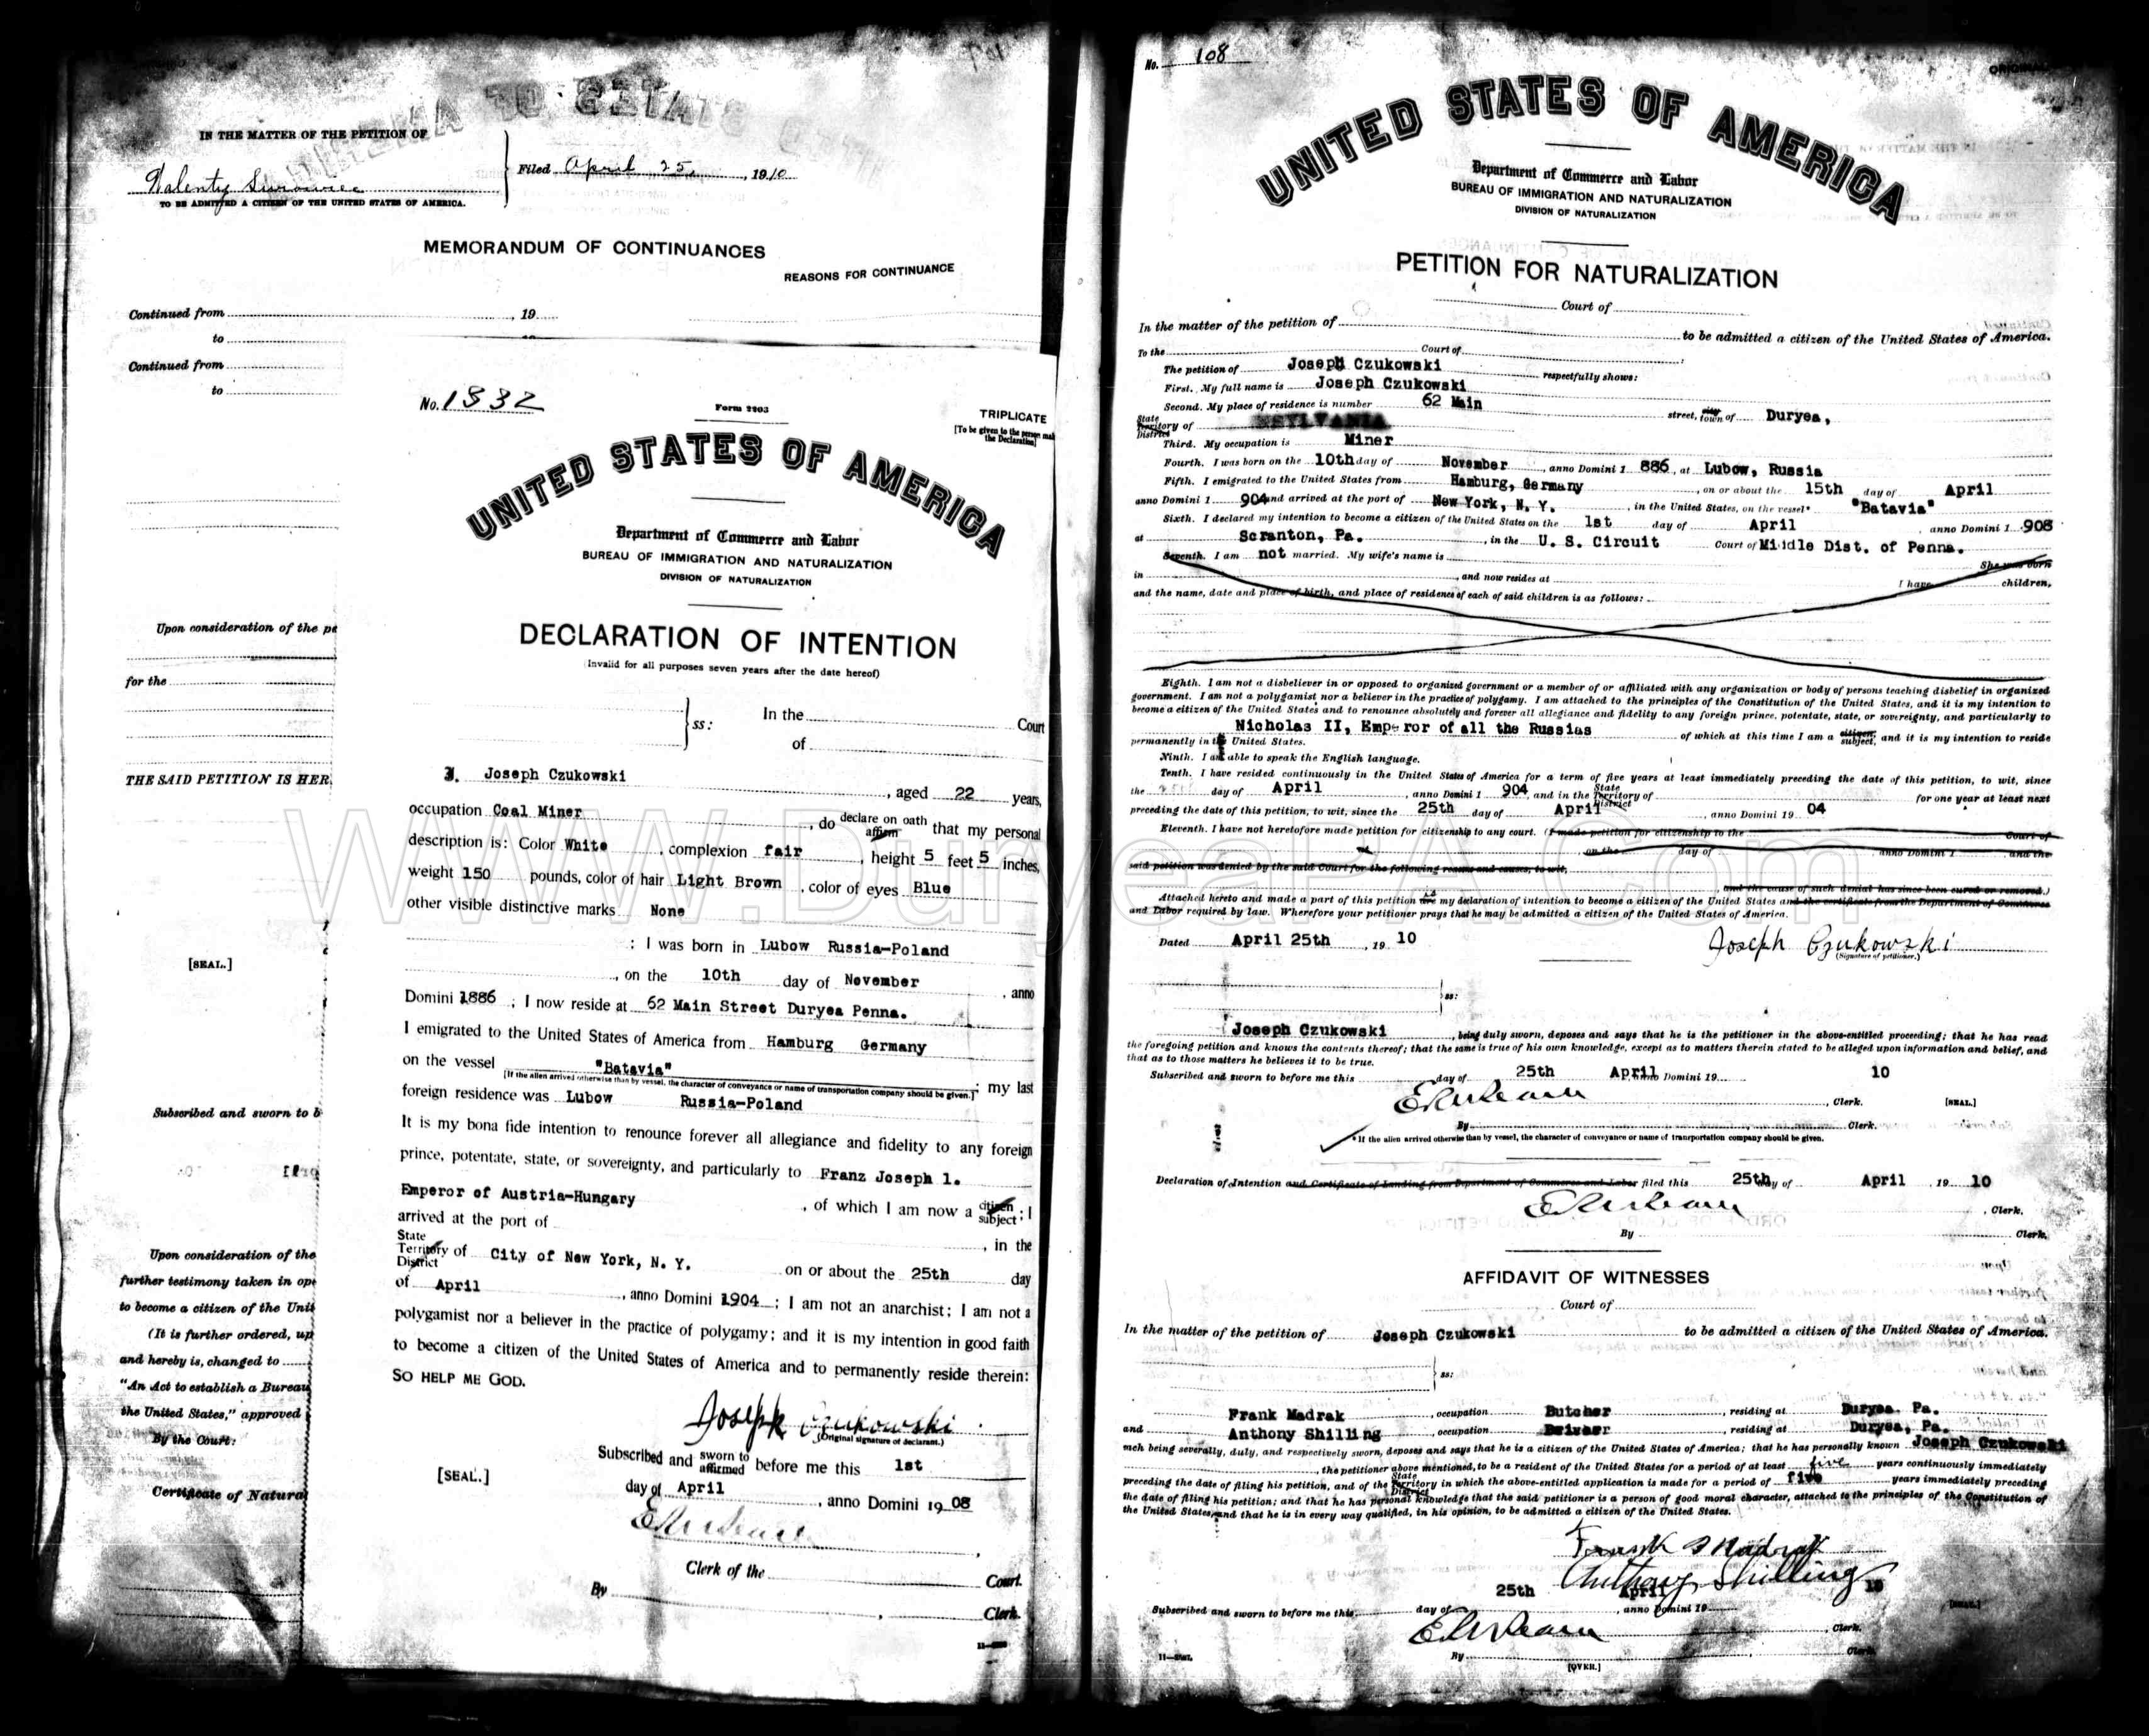 IN THE MATTER OF THE PETITION OF
Filed April 25, 1910
TO BE ADMITTED A CITIZEN OF THE UNITED STATES OF AMERICA.
MEMORANDUM OF CONTINUANCES
REASONS FOR CONTINUANCE
Continued from , 19
to
Continued from
to
Upon consideration of the
for the
THE SAID PETITION IS HER
[SEAL.]
Subscribed and sworn to b
Upon consideration of the
further testimony taken in ope
to become a citizen of the Unit
(It is further ordered, up
and hereby is, changed to
"An Act to establish a Bureau
the United States," approved
By the Court:
Certificate of Natura
No. 1332
Form 2203
TRIPLICATE
[To be given to the person mak
the Declaration]
UNITED STATES OF AMERICA
Department of Commerce and Labor
BUREAU OF IMMIGRATION AND NATURALIZATION
DIVISION OF NATURALIZATION
DECLARATION OF INTENTION
(Invalid for all purposes seven years after the date hereof)
ss: In the Court
of
I, Joseph Czukowski , aged 22 years,
occupation Coal Miner , do declare on oath affirm that my personal
description is: Color White , complexion fair , height 5 feet 5 inches,
weight 150 pounds, color of hair Light Brown , color of eyes Blue
other visible distinctive marks None
; I was born in Lubow Russia-Poland
, on the 10th day of November , anno
Domini 1886 ; I now reside at 62 Main Street Duryea Penna.
I emigrated to the United States of America from Hamburg Germany
on the vessel "Batavia" ; my last
[If the alien arrived otherwise than by vessel, the character of conveyance or name of transportation company should be given.]
foreign residence was Lubow Russia-Poland
It is my bona fide intention to renounce forever all allegiance and fidelity to any foreign
prince, potentate, state, or sovereignty, and particularly to Franz Joseph 1.
Emperor of Austria-Hungary , of which I am now a citizen subject ; I
arrived at the port of , in the
State Territory District of City of New York, N. Y. on or about the 25th day
of April , anno Domini 1904 ; I am not an anarchist; I am not a
polygamist nor a believer in the practice of polygamy; and it is my intention in good faith
to become a citizen of the United States of America and to permanently reside therein:
SO HELP ME GOD.
Joseph Czukowski
(Original signature of declarant.)
Subscribed and sworn to affirmed before me this 1st
[SEAL.] day of April , anno Domini 19 08
Clerk of the Court.
By , Clerk.
No. 108
UNITED STATES OF AMERICA
Department of Commerce and Labor
BUREAU OF IMMIGRATION AND NATURALIZATION
DIVISION OF NATURALIZATION
PETITION FOR NATURALIZATION
Court of
In the matter of the petition of to be admitted a citizen of the United States of America.
To the Court of :
The petition of Joseph Czukowski respectfully shows:
First. My full name is Joseph Czukowski
Second. My place of residence is number 62 Main street, city town of Duryea,
State Territory District of
Third. My occupation is Miner
Fourth. I was born on the 10th day of November , anno Domini 1 886 , at Lubow, Russia
Fifth. I emigrated to the United States from Hamburg, Germany , on or about the 15th day of April
anno Domini 1 904 and arrived at the port of New York, N. Y. , in the United States, on the vessel* "Batavia"
Sixth. I declared my intention to become a citizen of the United States on the 1st day of April anno Domini 1 908
at Scranton, Pa. , in the U. S. Circuit Court of Middle Dist. of Penna.
Seventh. I am not married. My wife's name is She was born
in , and now resides at I have children,
and the name, date and place of birth, and place of residence of each of said children is as follows:
Eighth. I am not a disbeliever in or opposed to organized government or a member of or affiliated with any organization or body of persons teaching disbelief in organized
government. I am not a polygamist nor a believer in the practice of polygamy. I am attached to the principles of the Constitution of the United States, and it is my intention to
become a citizen of the United States and to renounce absolutely and forever all allegiance and fidelity to any foreign prince, potentate, state, or sovereignty, and particularly to
Nicholas II, Emperor of all the Russias of which at this time I am a citizen subject, and it is my intention to reside
permanently in the United States.
Ninth. I am able to speak the English language.
Tenth. I have resided continuously in the United States of America for a term of five years at least immediately preceding the date of this petition, to wit, since
the day of April , anno Domini 1 904 , and in the State Territory District of for one year at least next
preceding the date of this petition, to wit, since the 25th day of April , anno Domini 19 04
Eleventh. I have not heretofore made petition for citizenship to any court. (I made petition for citizenship to the Court of
on the day of anno Domini 1 and the
said petition was denied by the said Court for the following reasons and causes, to wit,
, and the cause of such denial has since been cured or removed.)
Attached hereto and made a part of this petition are is my declaration of intention to become a citizen of the United States and the certificate from the Department of Commerce
and Labor required by law. Wherefore your petitioner prays that he may be admitted a citizen of the United States of America.
Dated April 25th , 19 10
Joseph Czukowski
(Signature of petitioner.)
ss:
Joseph Czukowski , being duly sworn, deposes and says that he is the petitioner in the above-entitled proceeding; that he has read
the foregoing petition and knows the contents thereof; that the same is true of his own knowledge, except as to matters therein stated to be alleged upon information and belief, and
that as to those matters he believes it to be true.
Subscribed and sworn to before me this day of 25th April anno Domini 19 10
, Clerk. [SEAL.]
By Clerk.
*If the alien arrived otherwise than by vessel, the character of conveyance or name of transportation company should be given.
Declaration of Intention and Certificate of Landing from Department of Commerce and Labor filed this 25th day of April , 19 10
, Clerk.
By Clerk.
AFFIDAVIT OF WITNESSES
Court of
In the matter of the petition of Joseph Czukowski to be admitted a citizen of the United States of America.
ss:
Frank Madrak , occupation Butcher , residing at Duryea. Pa.
and Anthony Shilling , occupation , residing at Duryea, Pa.
each being severally, duly, and respectively sworn, deposes and says that he is a citizen of the United States of America; that he has personally known Joseph Czukowski
, the petitioner above mentioned, to be a resident of the United States for a period of at least five years continuously immediately
preceding the date of filing his petition, and of the State Territory District in which the above-entitled application is made for a period of five years immediately preceding
the date of filing his petition; and that he has personal knowledge that the said petitioner is a person of good moral character, attached to the principles of the Constitution of
the United States, and that he is in every way qualified, in his opinion, to be admitted a citizen of the United States.
Frank Madrak
Anthony Shilling
Subscribed and sworn to before me this 25th day of April , anno Domini 19 10
, Clerk.
By Clerk.
[OVER.]
www.DuryeaPA.com